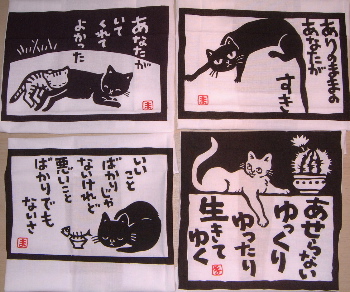 あなたが
いて
くれて
よかった
ありのままの
あなたが
すき
いい
こと
ばかりじゃ
ないけれど
悪いこと
ばかりでも
ないさ
あせらない
ゆっくり
ゆったり
生きて
ゆく